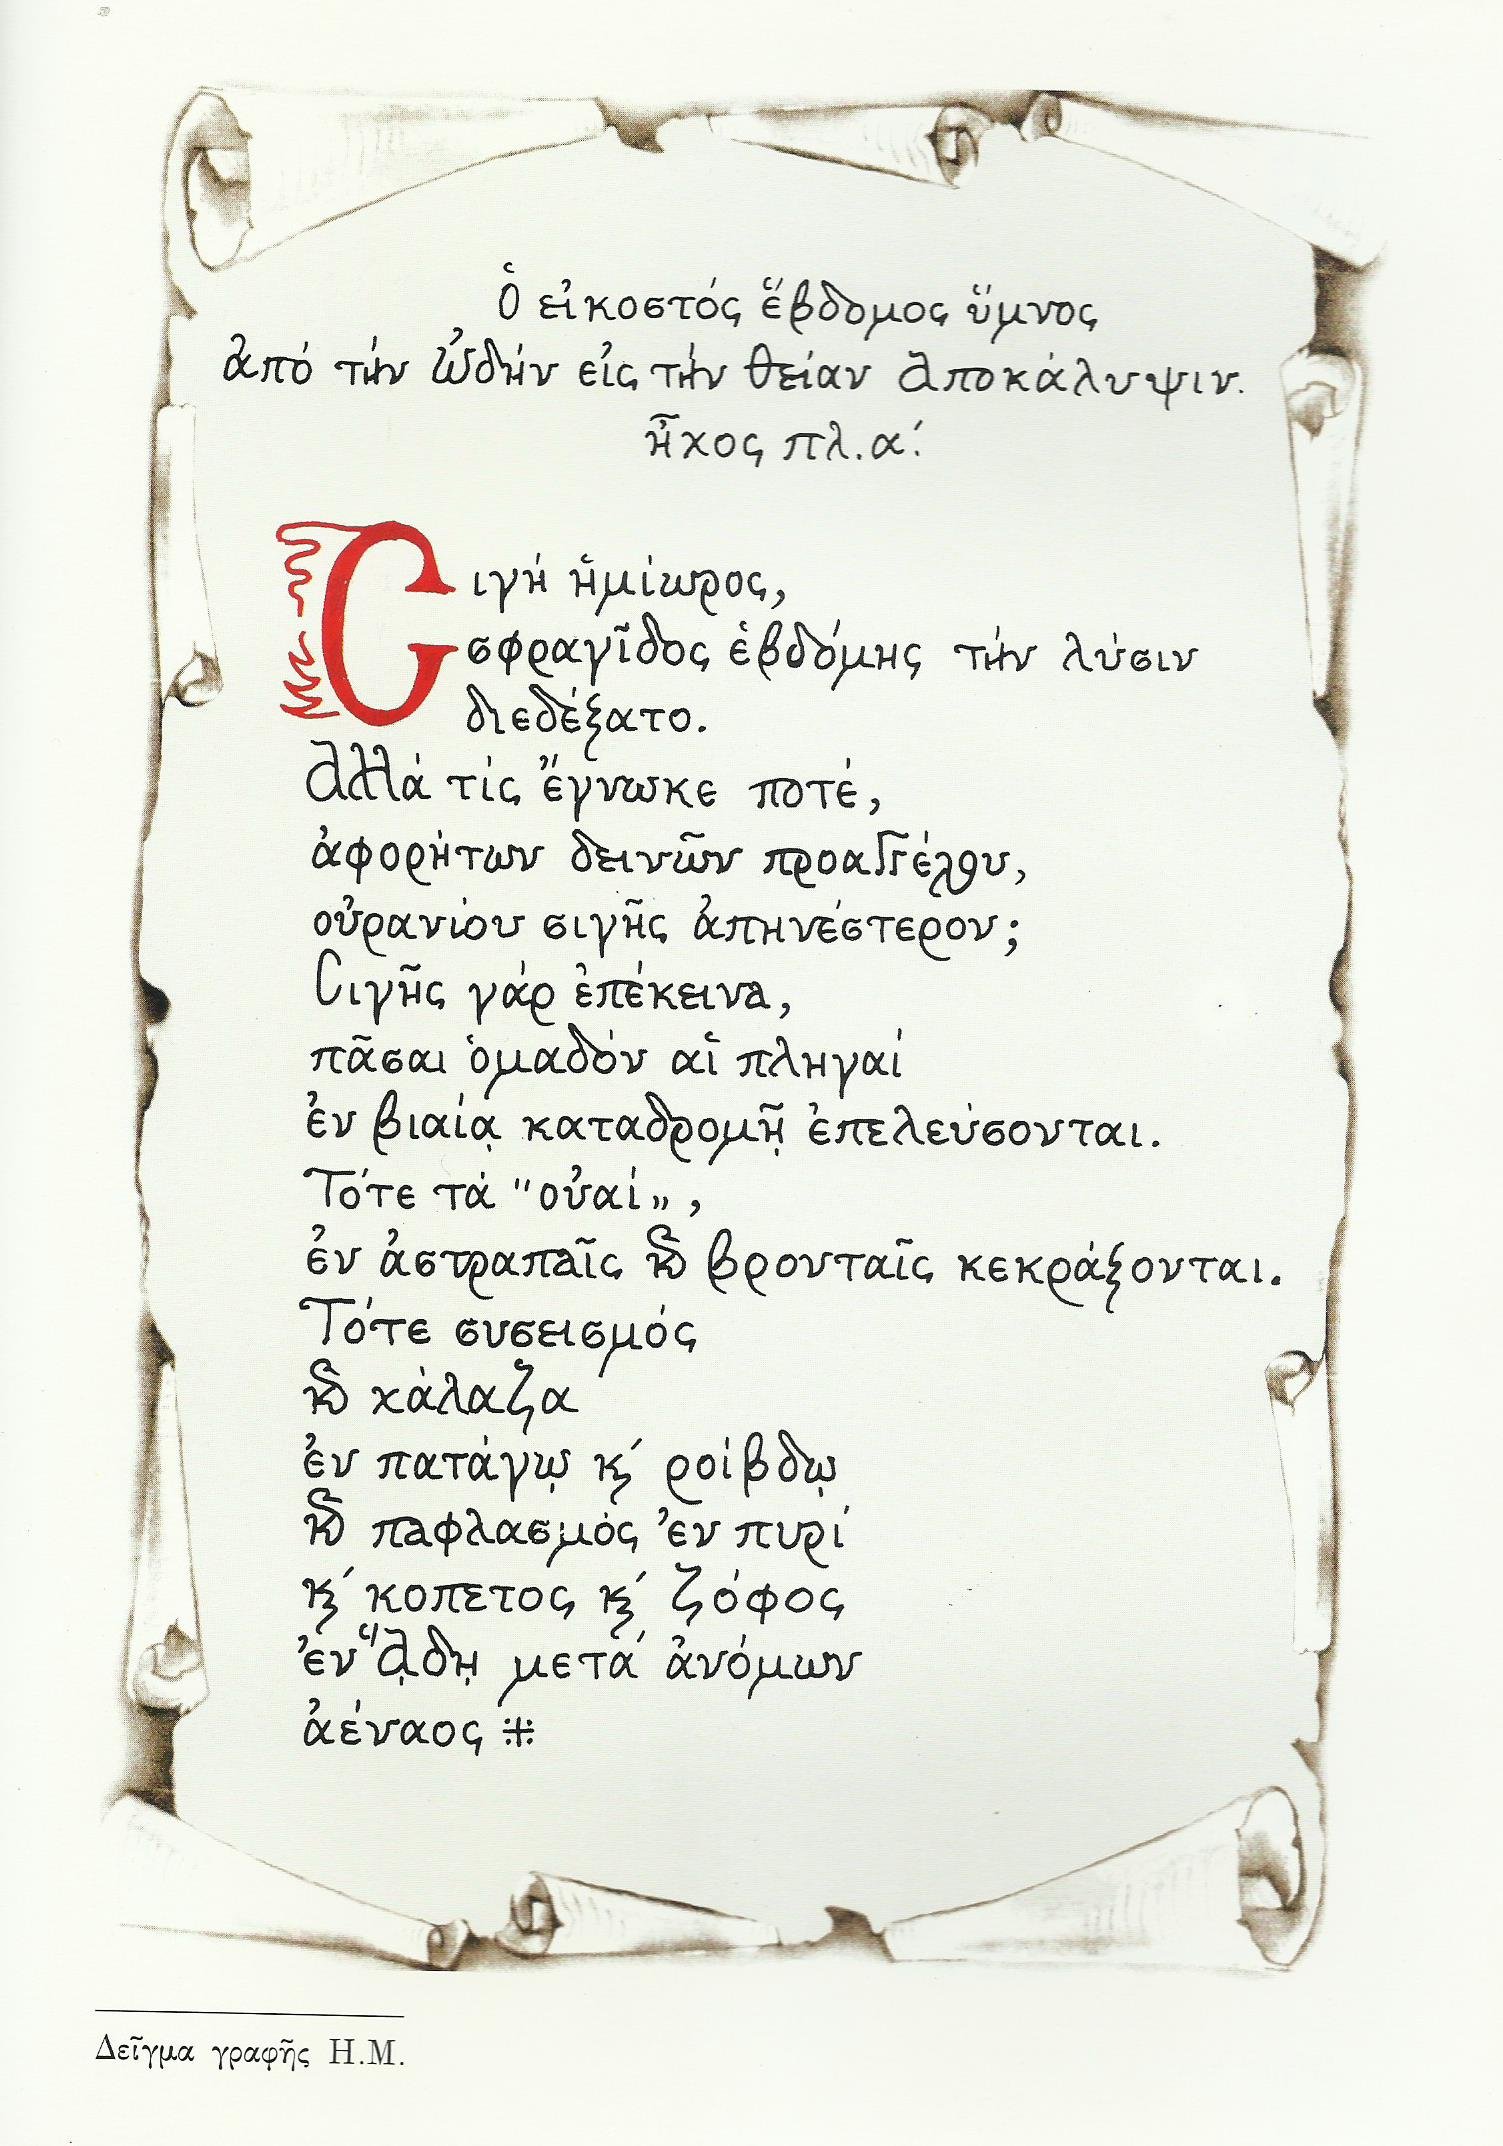 Ὁ εἰκοστός ἕβδομος ὕμνος
ἀπό τήν ᾠδήν εἰς τήν θείαν Ἀποκάλυψιν.
ἦχος πλ. α΄.
Σιγή ἡμίωρος,
σφραγῖδος ἑβδόμης τήν λύσιν
διεδέξατο.
Ἀλλά τίς ἔγνωκε ποτέ,
ἀφορήτων δεινῶν προαγγέλου,
οὐρανίου σιγῆς ἀπηνέστερον;
Σιγῆς γάρ ἐπέκεινα,
πᾶσαι ὁμαδόν αἱ πληγαί
ἐν βιαίᾳ καταδρομῇ ἐπελεύσονται.
Τότε τά "οὐαί»,
ἐν ἀστραπαῖς ϗ βρονταῖς κεκράξονται.
Τότε συσεισμός
ϗ χάλαζα
ἐν πατάγῳ ϗ ροίβδῳ
ϗ παφλασμός ἐν πυρί
ϗ κοπετος ϗ ζόφος
ἐν ᾅδῃ μετά ἀνόμων
ἀέναος ※
Δεῖγμα γραφῆς Η.Μ.